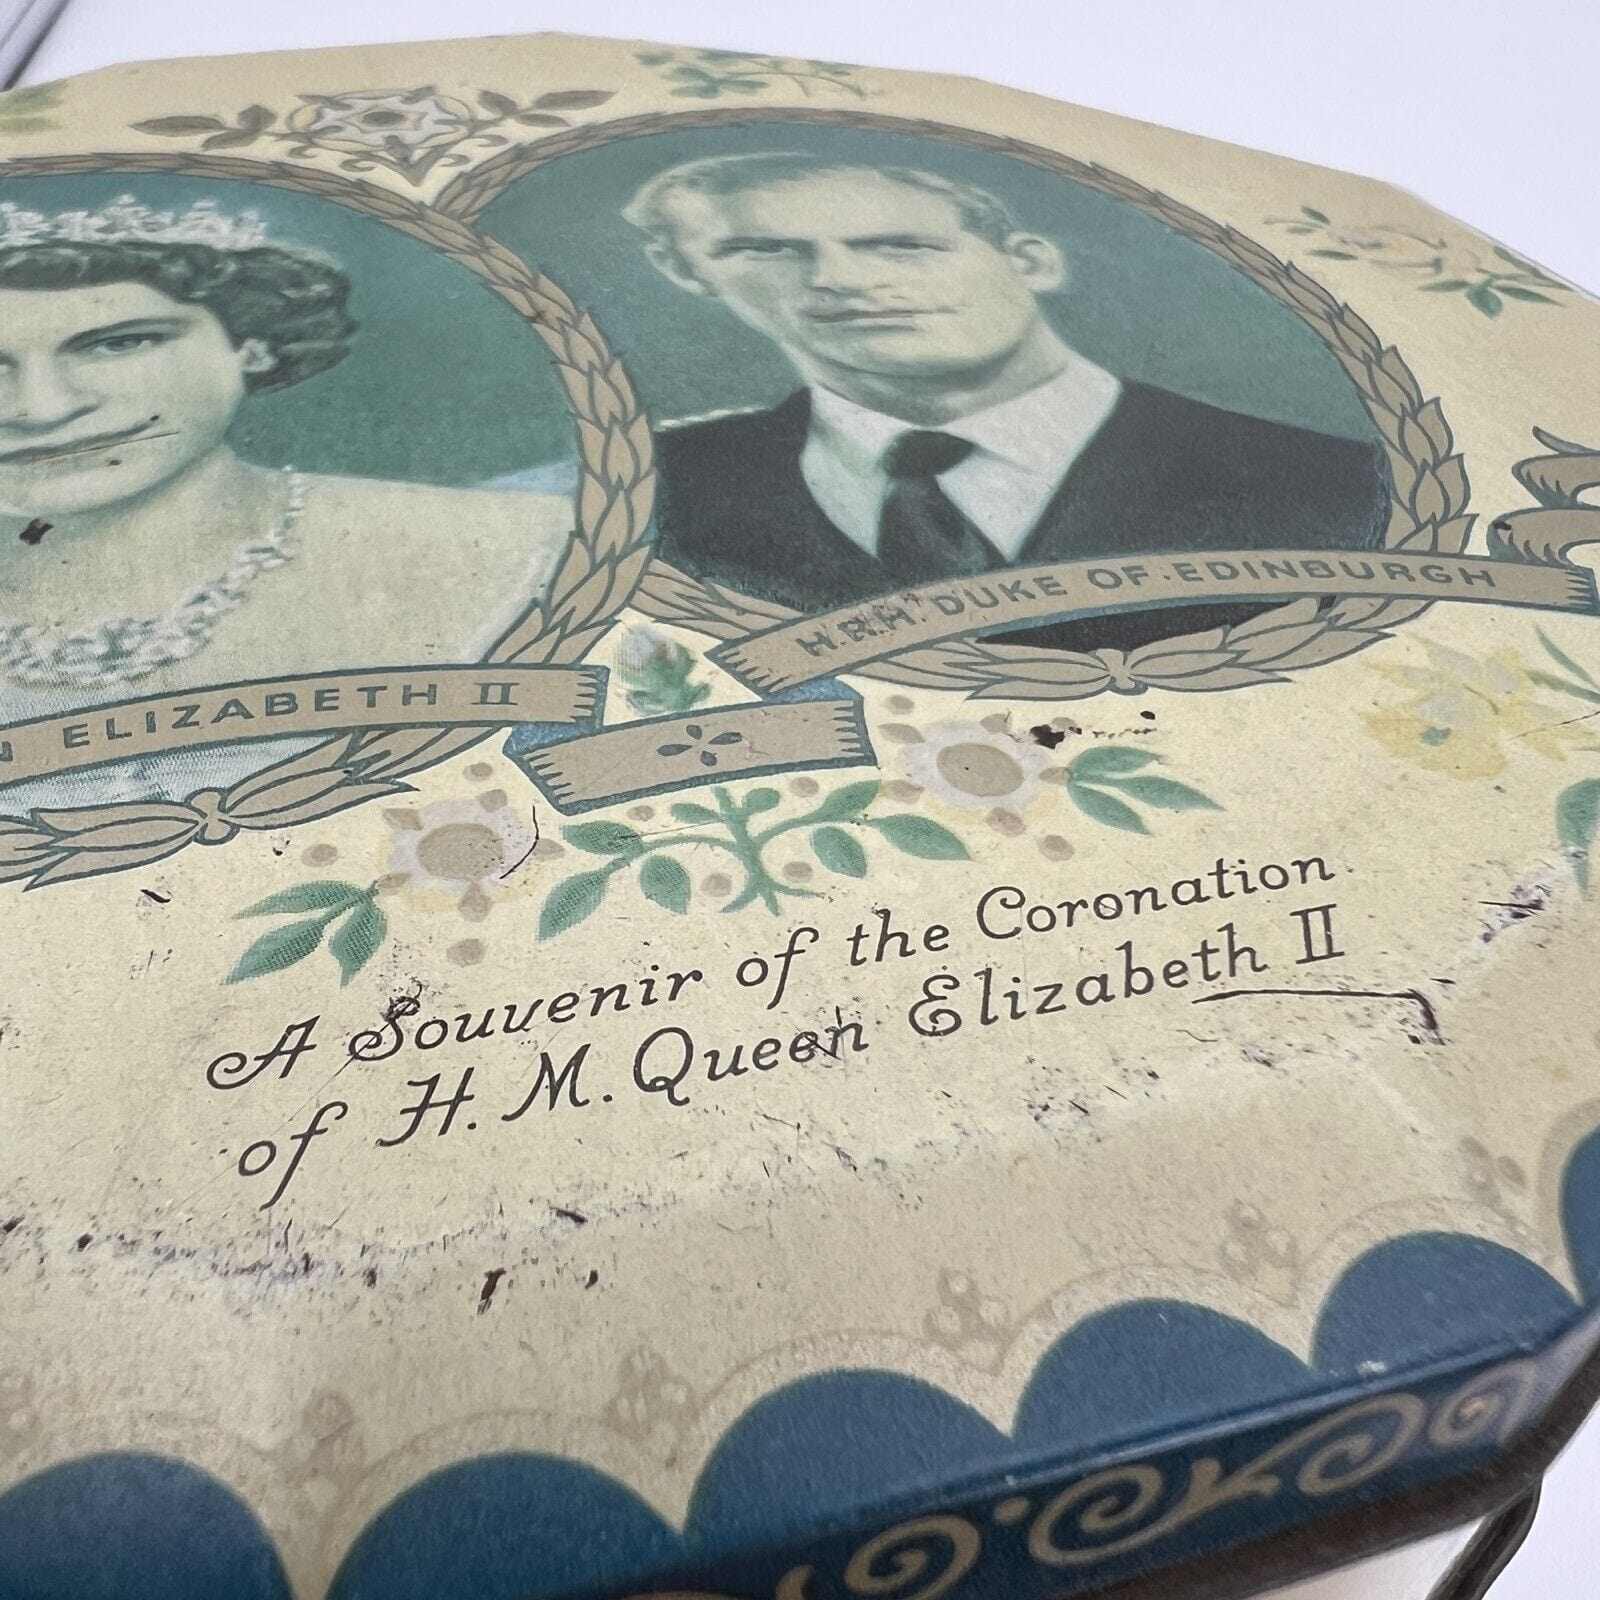 ELIZABETH II
H.R.H. DUKE OF EDINBURGH
A Souvenir of the Coronation
of H. M. Queen Elizabeth II